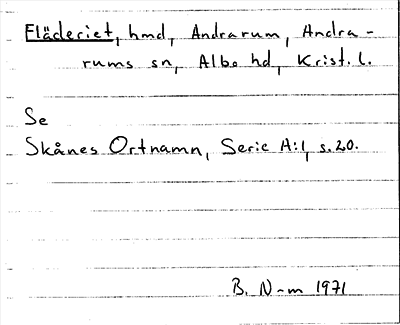 Fläderiet, hmd, Andrarum, Andra-
rums sn, Albo hd, Krist. l.
Se
Skånes Ortnamn, Serie A:1, s.20.
B. N-m 1971